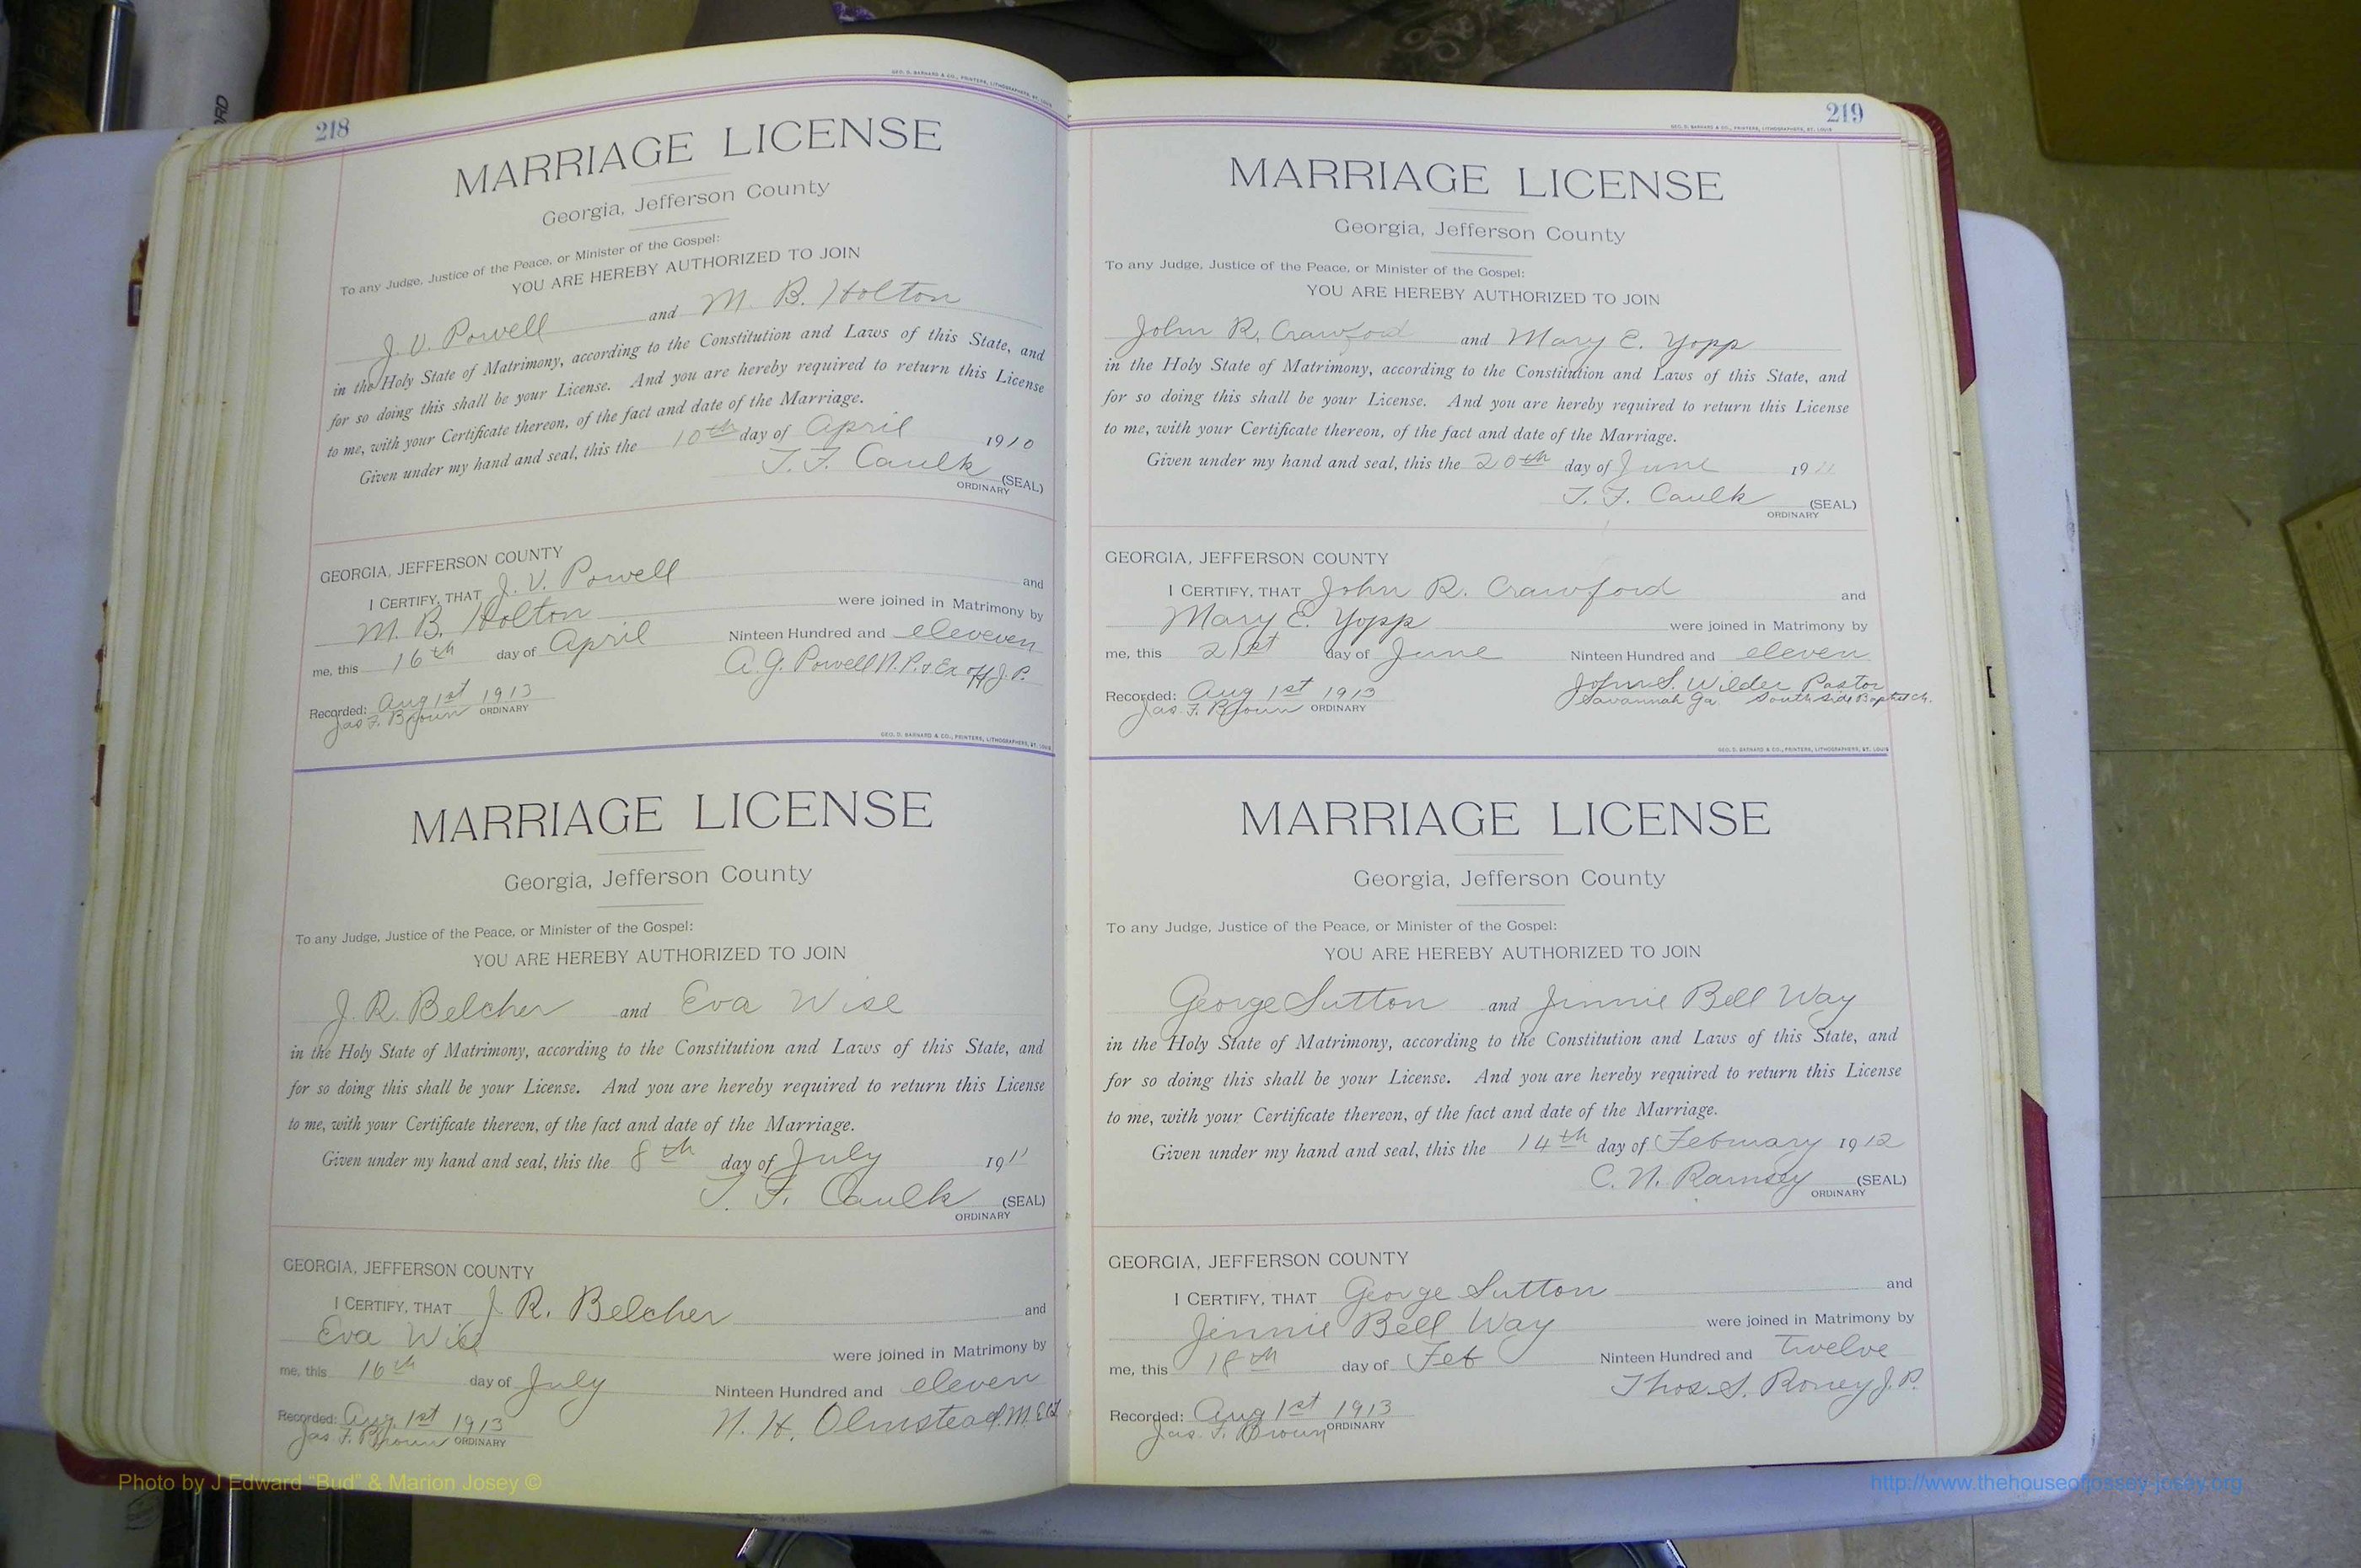 218
GEO. D. BARNARD & CO., PRINTERS, LITHOGRAPHERS, ST. LOUIS
MARRIAGE LICENSE
Georgia, Jefferson County
To any Judge, Justice of the Peace, or Minister of the Gospel:
YOU ARE HEREBY AUTHORIZED TO JOIN
J. V. Powell and M. B. Holton
in the Holy State of Matrimony, according to the Constitution and Laws of this State, and
for so doing this shall be your License. And you are hereby required to return this License
to me, with your Certificate thereon, of the fact and date of the Marriage.
Given under my hand and seal, this the 10th day of April 1910
T. F. Caulk (SEAL)
ORDINARY
GEORGIA, JEFFERSON COUNTY
I CERTIFY, THAT J. V. Powell and
M. B. Holton were joined in Matrimony by
me, this 16th day of April Ninteen Hundred and eleveven
A. G. Powell N. P. & Ex off J. P.
Recorded: Aug 1st 1913
Jas F. Brown ORDINARY
GEO. D. BARNARD & CO., PRINTERS, LITHOGRAPHERS, ST. LOUIS
MARRIAGE LICENSE
Georgia, Jefferson County
To any Judge, Justice of the Peace, or Minister of the Gospel:
YOU ARE HEREBY AUTHORIZED TO JOIN
J. R. Belcher and Eva Wise
in the Holy State of Matrimony, according to the Constitution and Laws of this State, and
for so doing this shall be your License. And you are hereby required to return this License
to me, with your Certificate thereon, of the fact and date of the Marriage.
Given under my hand and seal, this the 8th day of July 1911
T. F. Caulk (SEAL)
ORDINARY
GEORGIA, JEFFERSON COUNTY
I CERTIFY, THAT J. R. Belcher and
Eva Wise were joined in Matrimony by
me, this 16th day of July Ninteen Hundred and eleven
N. H. Olmstead.
Recorded: Aug. 1st 1913
Jas F. Brown ORDINARY
219
GEO. D. BARNARD & CO., PRINTERS, LITHOGRAPHERS, ST. LOUIS
MARRIAGE LICENSE
Georgia, Jefferson County
To any Judge, Justice of the Peace, or Minister of the Gospel:
YOU ARE HEREBY AUTHORIZED TO JOIN
John R. Crawford and Mary E. Yopp
in the Holy State of Matrimony, according to the Constitution and Laws of this State, and
for so doing this shall be your License. And you are hereby required to return this License
to me, with your Certificate thereon, of the fact and date of the Marriage.
Given under my hand and seal, this the 20th day of June 1911
T. F. Caulk (SEAL)
ORDINARY
GEORGIA, JEFFERSON COUNTY
I CERTIFY, THAT John R. Crawford and
Mary E. Yopp were joined in Matrimony by
me, this 21st day of June Ninteen Hundred and eleven
John S. Wilder Pastor
Savannah Ga. South Side Baptist Ch.
Recorded: Aug 1st 1913
Jas F. Brown ORDINARY
GEO. D. BARNARD & CO., PRINTERS, LITHOGRAPHERS, ST. LOUIS
MARRIAGE LICENSE
Georgia, Jefferson County
To any Judge, Justice of the Peace, or Minister of the Gospel:
YOU ARE HEREBY AUTHORIZED TO JOIN
George Sutton and Jinnie Bell Way
in the Holy State of Matrimony, according to the Constitution and Laws of this State, and
for so doing this shall be your License. And you are hereby required to return this License
to me, with your Certificate thereon, of the fact and date of the Marriage.
Given under my hand and seal, this the 14th day of February 1912
C. N. Ramsey (SEAL)
ORDINARY
GEORGIA, JEFFERSON COUNTY
I CERTIFY, THAT George Sutton and
Jinnie Bell Way were joined in Matrimony by
me, this 18th day of Feb Ninteen Hundred and twelve
Thos. S. Roney J. P.
Recorded: Aug 1st 1913
Jas. F. Brown ORDINARY
Photo by J Edward "Bud" & Marion Josey ©
http://www.thehouseofjossey-josey.org